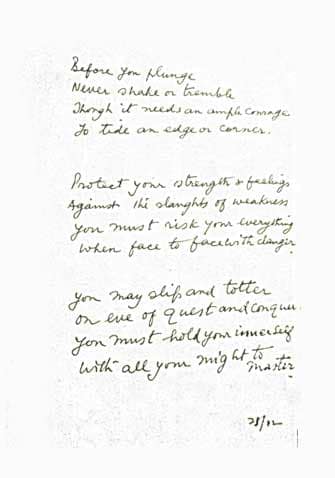 Before you plunge
Never shake or tremble
Though it needs an ample courage
To tide an edge or corner.
Protect your strength & feelings
Against the slaughts of weakness
You must risk your everything
When face to face with danger.
You may slip and totter
On eve of quest and conquer.
You must hold your innerself
With all your might to
master.